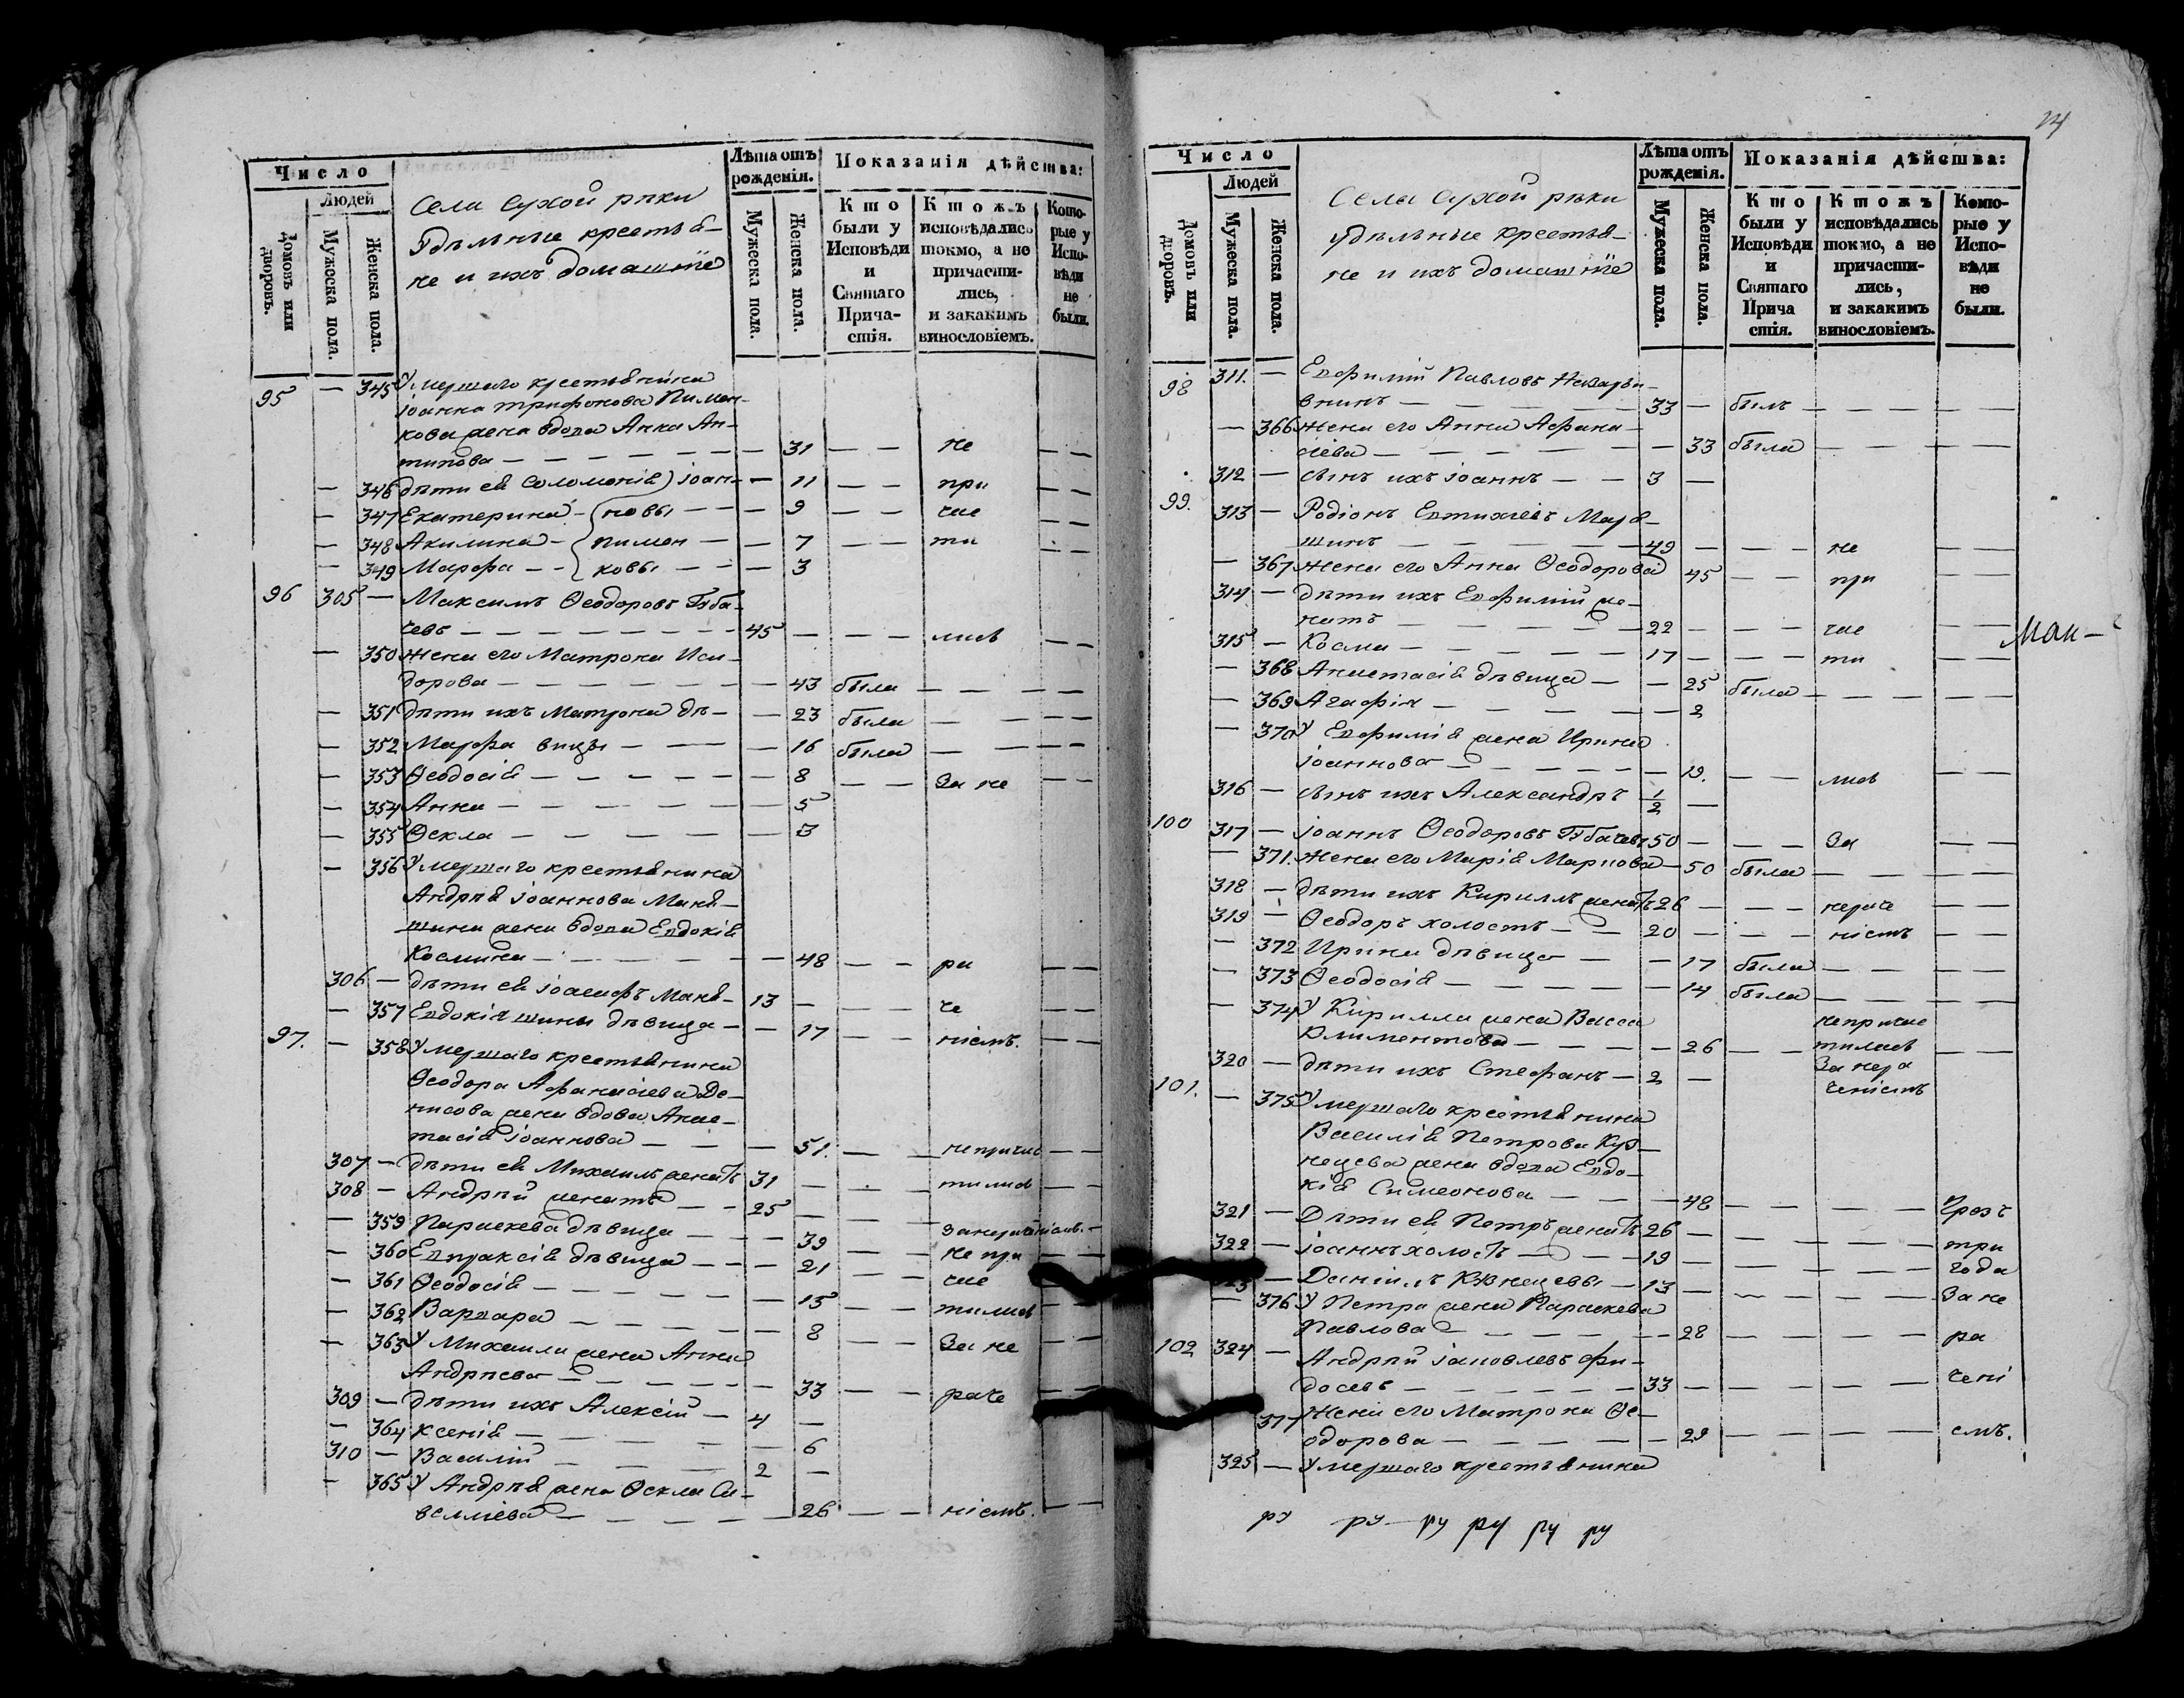 Число
Людей
Домовъ или дворовъ.
Мужеска пола.
Женска пола.
Села Сухой рѣки
Удѣльные крестья-
не и ихъ домашніе
Лѣта отъ рожденія.
Мужеска пола.
Женска пола.
Показанія дѣйства:
Кто были у Исповѣди и Святаго Причастія.
Ктожъ исповѣдались токмо, а не причастились, и закакимъ винословіемъ.
Которые у Исповѣди не были.
95 — 345 Умершаго крестьянина
Іоанна Трифонова Пимен-
кова жена вдова Анна Ан-
типова — 31 — — не — —
— 346 дѣти ея Соломонія) Іоан- — 11 — — при — —
— 347 Екатерина - (новы — — 9 — — час — —
— 348 Акилина - { пимен — — 7 — — ти — —
— 349 Марфа - - ковы — — 3
96 305 — Максимъ Ѳеодоровъ
чевъ — 45 — — — лись — —
— 350 Жена его Матрона Иси-
дорова — 43 была — —
— 351 дѣти ихъ Матрона дѣ- — 23 была — —
— 352 Марфа вицы — — 16 была — —
— 353 Ѳеодосія — 8 — — За не — —
— 354 Анна — 5
— 355 Ѳекла — 3
— 356 Умершаго крестьянина
Андрея Іоаннова Маня-
шина жена вдова Евдокія
Космина — 48 — — ра — —
306 — дѣти ея Іоасифъ Маня- 13 — — че — —
— 357 Евдокія шины дѣвица — 17 — — ніемъ. — —
97. — 358 Умершаго крестьянина
Ѳеодора Афанасіева Де-
нисова жена вдова Анас-
тасія Іоаннова — 51. — — непричас — —
307 — дѣти ея Михаилъ женатъ 31 — — тились — —
308 — Андрей женатъ — 25 — — —
— 359 Параскева дѣвица — 39 — занераченіемъ. —
— 360 Евпраксія дѣвица — 21 — — не при — —
— 361 Ѳеодосія — 15 — — час — —
— 362 Варвара — 8 — — тились — —
— 363 У Михаила жена Анна — — За не — —
Андреева — 33 — — раче — —
309 — дѣти ихъ Алексій — 4 —
— 364 Ксенія — 6
310 — Василій — 2 —
— 365 У Андрея жена Ѳекла Са-
велліева — 26 — — ніемъ. — —
14
Число
Людей
Домовъ или дворовъ.
Мужеска пола.
Женска пола.
Села Сухой рѣки
удѣльные крестья-
не и ихъ домашніе
Лѣта отъ рожденія.
Мужеска пола.
Женска пола.
Показанія дѣйства:
Кто были у Исповѣди и Святаго Причастія.
Ктожъ исповѣдались токмо, а не причастились, и закакимъ винословіемъ.
Которые у Исповѣди не были.
98 311. — Евфимій Павловъ
внинъ — 33 — былъ — —
— 366 Жена его Анна Афана-
сіева — 33 была — —
312 — сынъ ихъ Іоаннъ — — 3 —
99. 313 — Родіонъ Евтихіевъ Маря-
шинъ — 49 — — — не — —
— 367 жена его Анна Ѳеодорова 45 — — при — —
314 — дѣти ихъ Евфимій же-
натъ — 22 — — — час — —
315 — Косма — 17 — — — ти — —
Ман-
— 368 Анастасія дѣвица — — 25 была — —
— 369 Агафія — 2
— 370 У Евфимія жена Ирина
Іоаннова — 19. — — лись — —
316 — сынъ ихъ Александръ 1/2 —
100 317 — Іоаннъ Ѳеодоровъ 50 — — — За — —
— 371. Жена его Марія Маркова — 50 была — —
318 — дѣти ихъ Кириллъ женатъ 26 — — — нераче — —
319 — Ѳеодоръ холостъ — — 20 — — — ніемъ — —
— 372 Ирина дѣвица — — 17 была — —
— 373 Ѳеодосія — 14 была — —
— 374 У Кирилла жена Васса непричас
Климентова — 26 — — тилась — —
320 — дѣти ихъ Стефанъ — 2 — За нера
101. — 375 Умершаго крестьянина ченіемъ
Василія Петрова Куз-
нецова жена вдова Евдо-
кія Симеонова — — 48 — — — — Чрезъ
321 — Дѣти ея Петръ женатъ 26 — — — три
322 — Іоаннъ холостъ — 19 — — — года
323 — Даніилъ Кузнецовы — 13 — — — — За не
— 376 У Петра жена Параскева
Павлова — 28 — — — — ра
102 324 — Андрей Іаковлевъ Фи-
досевъ — 33 — — — — чені
377 Жена его Матрона Ѳе-
одорова — 29 — — — — емъ.
325 — Умершаго крестьянина
ру ру ру ру ру ру